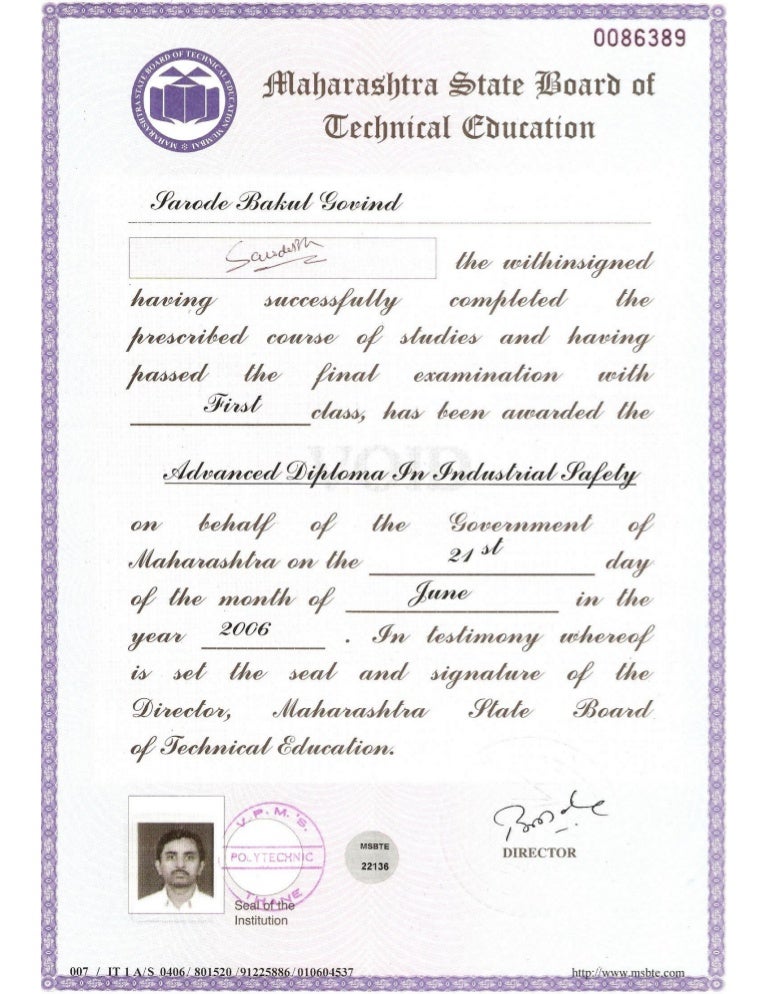 0086389
MAHARASHTRA STATE BOARD OF TECHNICAL EDUCATION MUMBAI
Maharashtra State Board of
Technical Education
Sarode Bakul Govind
the withinsigned
having successfully completed the
prescribed course of studies and having
passed the final examination with
First class, has been awarded the
VOID
Advanced Diploma In Industrial Safety
on behalf of the Government of
Maharashtra on the 21st day
of the month of June in the
year 2006 . In testimony whereof
is set the seal and signature of the
Director, Maharashtra State Board
of Technical Education.
V.P.M.'S.
POLYTECHNIC
THANE
MSBTE
22136
DIRECTOR
Seal of the
Institution
007 / IT 1 A/S 0406/ 801520 /91225886/010604537
http://www.msbte.com